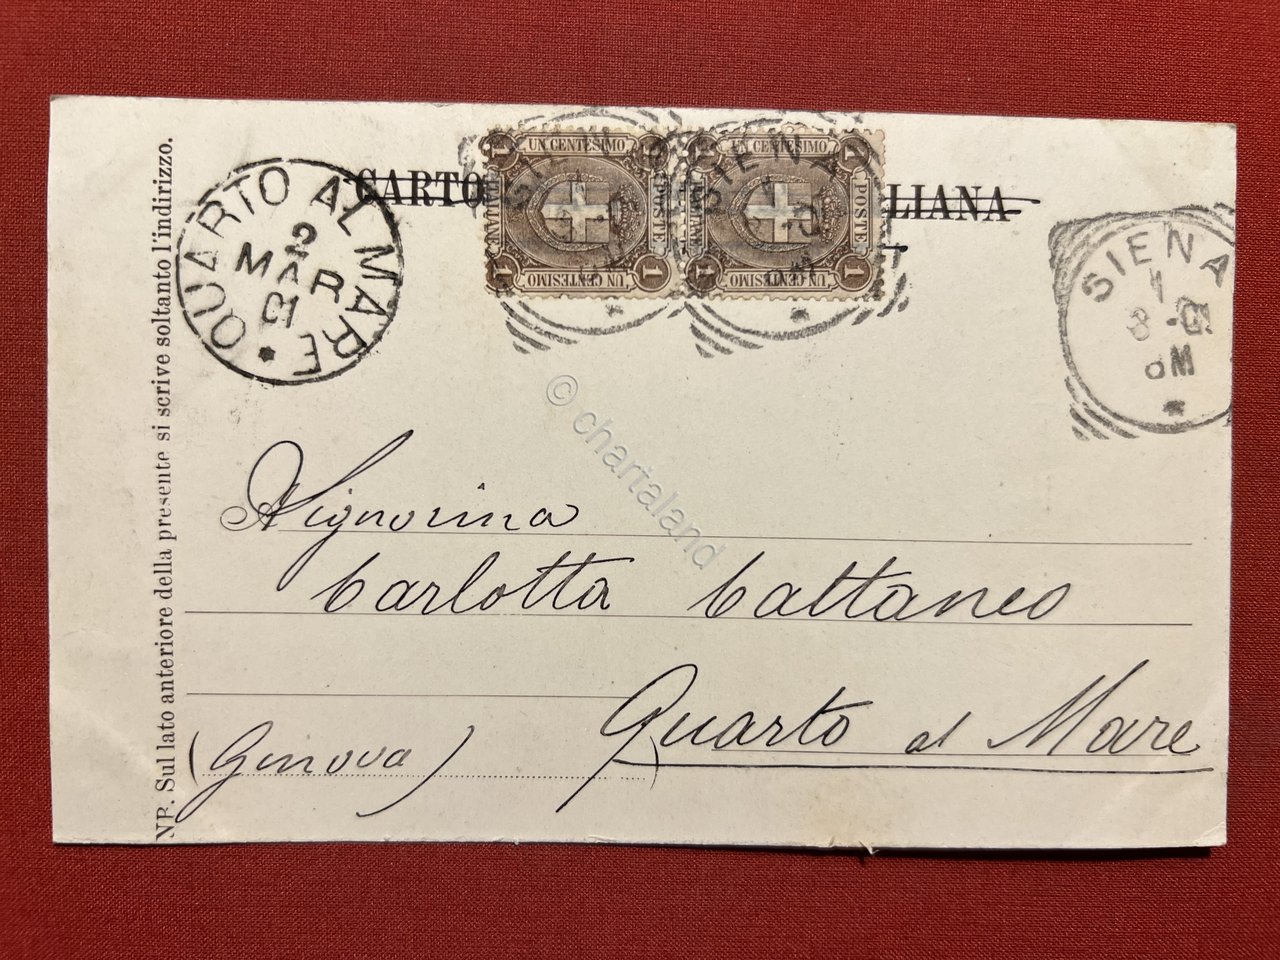 NB. Sul lato anteriore della presente si scrive soltanto l'indirizzo.
QUARTO AL MARE
2
MAR
01
CARTO
LIANA
1 UN CENTESIMO 1
ITALIANE
POSTE
1 UN CENTESIMO 1
1 UN CENTESIMO 1
POSTE
1 UN CENTESIMO 1
SIENA
SIENA
1
8M
© chartaland
Signorina
Carlotta Cattaneo
Quarto al Mare
(Genova)